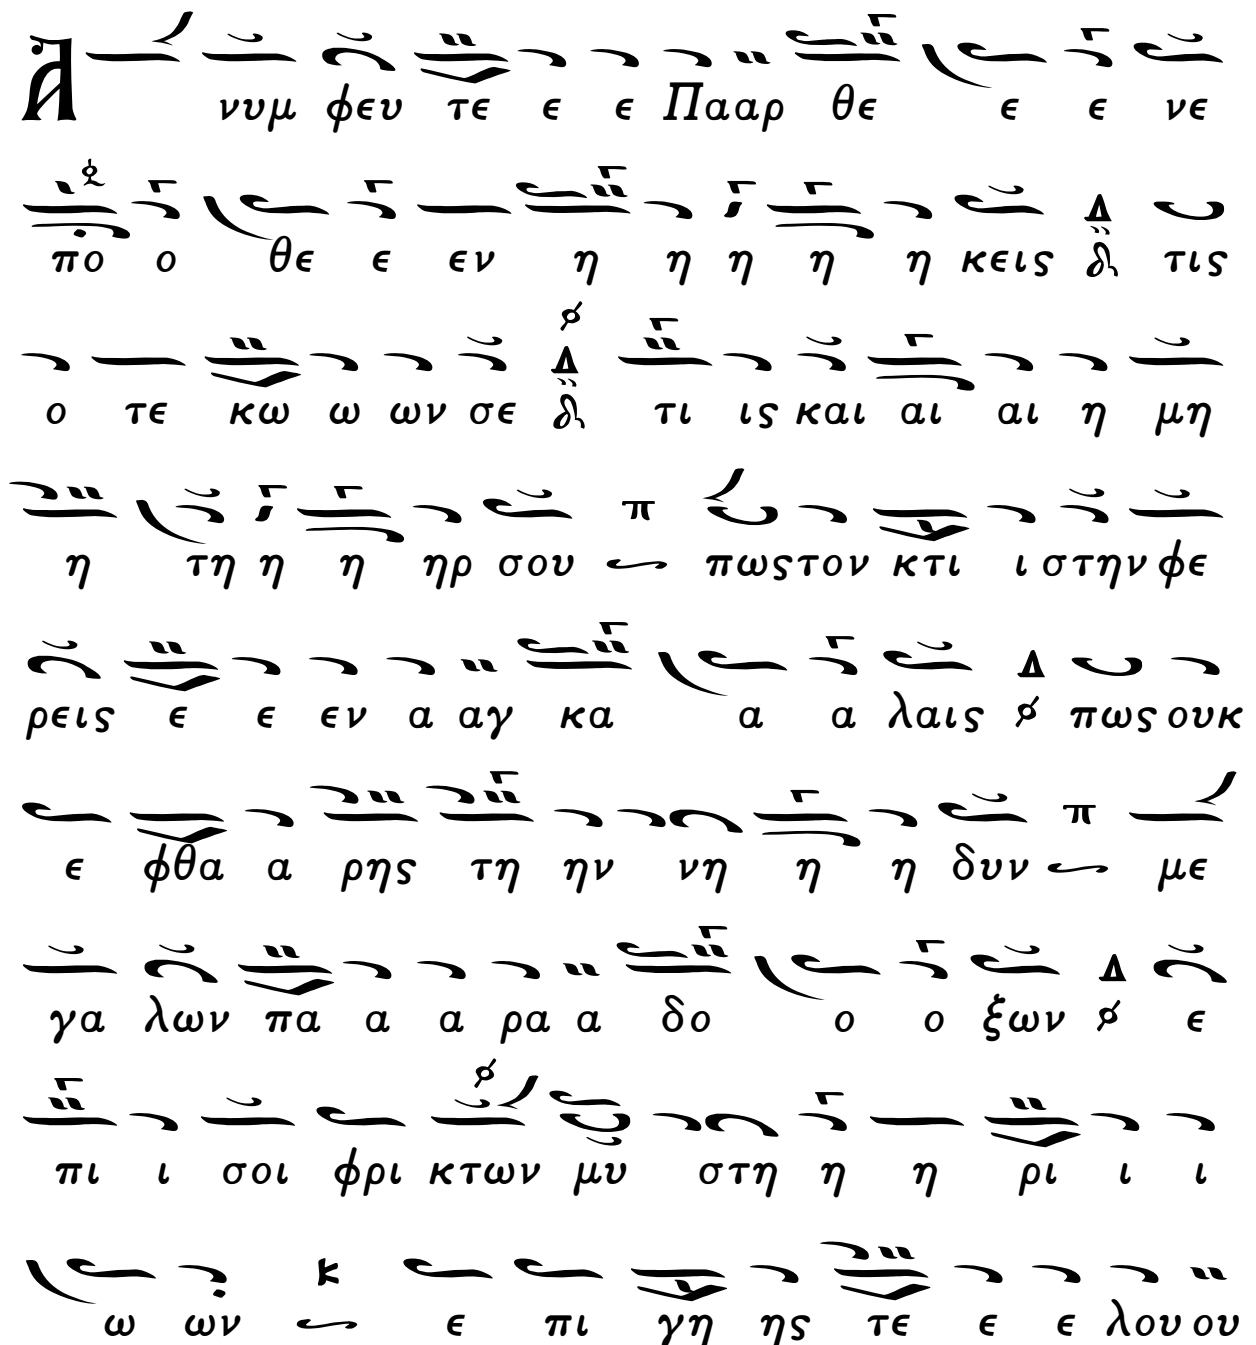 Α νυμ φευ τε ε ε Πααρ θε ε ε νε
πο ο θε ε εν η η η η η κεις τις
ο τε κω ω ων σε τι ις και αι αι η μη
η τη η η ηρ σου πως τον κτι ι στην φε
ρεις ε ε εν α αγ κα α α λαις πως ουκ
ε φθα α ρης τη ην νη η η δυν με
γα λων πα α α ρα α δο ο ο ξων ε
πι ι σοι φρι κτων μυ στη η η ρι ι ι
ω ων ε πι γη ης τε ε ε λου ου